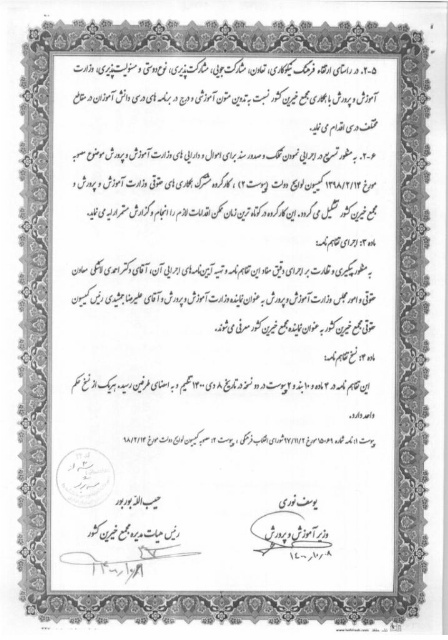 ۲-۵. در راستای ارتقاء فرهنگ نیکوکاری، تعاون، مشارکت جویی، مشارکت پذیری، نوع دوستی و مسئولیت پذیری، وزارت
آموزش و پرورش با همکاری مجمع خیرین کشور نسبت به تدوین متون آموزشی و درج در برنامه های درسی دانش آموزان در مقاطع
مختلف درسی اقدام می نماید.
۲-۶. به منظور تسریع در اجرایی نمودن تملک و صدور سند برای اموال و دارایی های وزارت آموزش و پرورش موضوع مصوبه
مورخ ۱۳۹۸/۲/۱۴ کمیسیون لوایح دولت (پیوست ۲)، کارگروه مشترک با همکاری های حقوقی وزارت آموزش و پرورش و
مجمع خیرین کشور تشکیل می گردد. این کارگروه در کوتاه ترین زمان ممکن اقدامات لازم را انجام و گزارش مستمر ارایه می نماید.
ماده ۳: اجرای تفاهم نامه:
به منظور پیگیری و نظارت بر اجرای دقیق مفاد این تفاهم نامه و تهیه آیین نامه های اجرایی آن، آقای دکتر احمدی لاشکی معاون
حقوقی و امور مجلس وزارت آموزش و پرورش به عنوان نماینده وزارت آموزش و پرورش و آقای علیرضا جمشیدی رئیس کمیسیون
حقوقی مجمع خیرین کشور به عنوان نماینده مجمع خیرین کشور معرفی می شوند.
ماده ۴: نسخ تفاهم نامه:
این تفاهم نامه در ۴ ماده و ۱۰ بند و ۲ پیوست در دو نسخه در تاریخ ۸ دی ۱۴۰۰ تنظیم و به امضای طرفین رسیده، هر یک از نسخ حکم
واحد دارد.
پیوست ۱: نامه شماره ۱۵۰۶۹ مورخ ۹۷/۱۱/۲ شورای انقلاب فرهنگی، پیوست ۲: مصوبه کمیسیون لوایح دولت مورخ ۹۸/۲/۱۴
یوسف نوری
وزیر آموزش و پرورش
۱۴۰۰/۱۰/۰۸
حبیب الله بوربور
رئیس هیات مدیره مجمع خیرین کشور